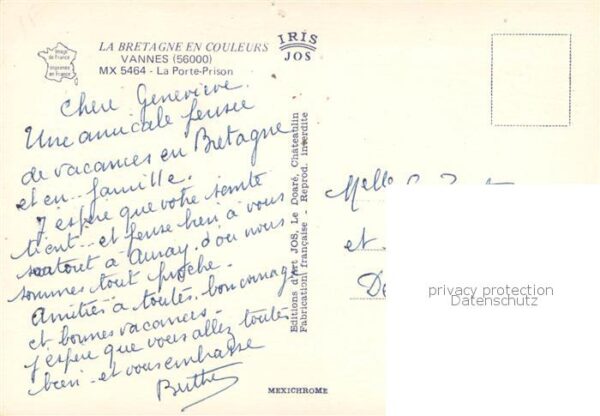 Image de France
Imprimée en France
LA BRETAGNE EN COULEURS
VANNES (56000)
MX 5464 - La Porte-Prison
IRIS
JOS
Chère Geneviève.
Une amicale pensée
de vacances en Bretagne
et en.. famille.
J'espère que votre santé
tient.. et pense bien à vous
surtout à Auray, d'où nous
sommes tout proche.
Amitiés à toutes. bon courage
et bonnes vacances.
J'espère que vous allez toutes
bien. et vous embrasse
Berthe
Editions d'Art JOS, Le Doaré, Châteaulin
Fabrication française Reprod. interdite
MEXICHROME
Melle
et
privacy protection
Datenschutz